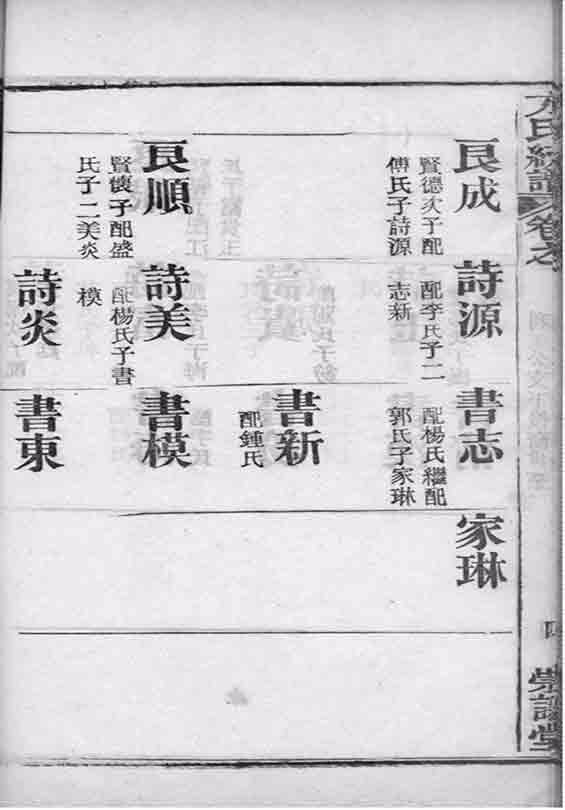 方氏統譜 卷之
四
崇譜堂
良成
賢德次子配
傅氏子詩源
詩源
配李氏子二
志新
書志
配楊氏繼配
郭氏子家琳
家琳
書新
配鍾氏
良順
賢懷子配盛
氏子二美炎
詩美
配楊氏子書
模
書模
詩炎
書東